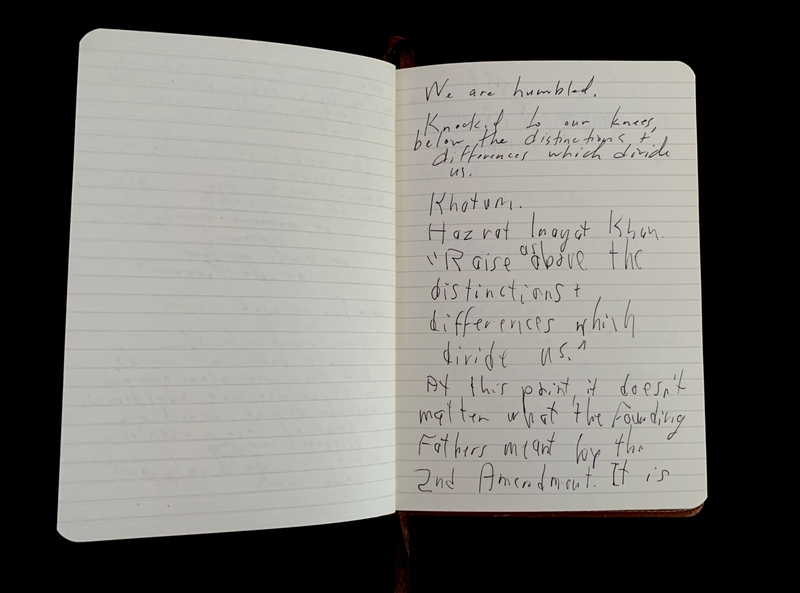 We are humbled.
Knocked to our knees,
below the distinctions +
differences which divide
us.
Khatum.
Hazrat Inayat Khan.
"Raise us above the
distinctions +
differences which
divide us."
At this point, it doesn't
matter what the Founding
Fathers meant by the
2nd Amendment. It is